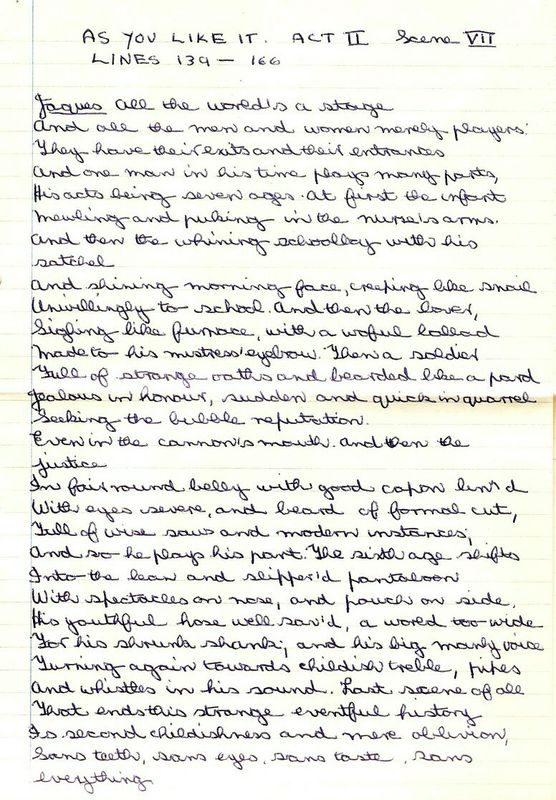 AS YOU LIKE IT. ACT II Scene VII
LINES 139 - 166
Jaques All the world's a stage
And all the men and women merely players:
They have their exits and their entrances
And one man in his time plays many parts,
His acts being seven ages. At first the infant
Mewling and puking in the nurse's arms.
And then the whining schoolboy with his
satchel
And shining morning face, creeping like snail
Unwillingly to school. And then the lover,
Sighing like furnace, with a woful ballad
Made to his mistress' eyebrow. Then a soldier
Full of strange oaths and bearded like a pard
Jealous in honour, sudden and quick in quarrel
Seeking the bubble reputation.
Even in the cannon's mouth. And then the
justice
In fair round belly with good capon lin'd
With eyes severe, and beard of formal cut,
Full of wise saws and modern instances;
And so he plays his part. The sixth age shifts
Into the lean and slipper'd pantaloon
With spectacles on nose, and pouch on side.
His youthful hose well sav'd, a world too wide
For his shrunk shank; and his big manly voice
Turning again towards childish treble, pipes
And whistles in his sound. Last scene of all
That ends this strange eventful history
Is second childishness and mere oblivion,
Sans teeth, sans eyes, sans taste, sans
everything.